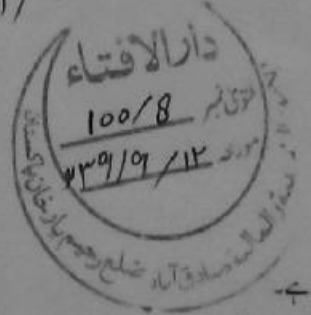 دارالافتاء
فتویٰ نمبر 100/8
مورخہ ۱۲/۹/۳۹ھ
صادق آباد ضلع رحیم یار خان پاکستان
ہے۔